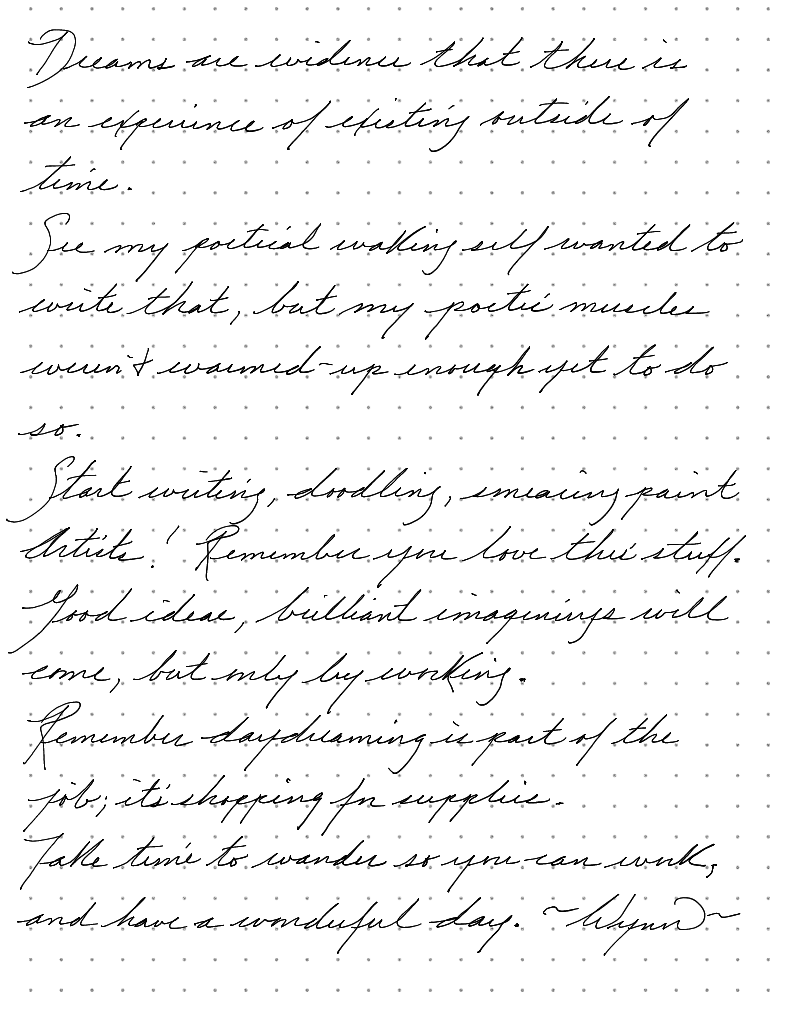 Dreams are evidence that there is
an experience of existing outside of
time.
See my poetical waking self wanted to
write that, but my poetic muscles
weren't warmed-up enough yet to do
so.
Start writing, doodling, smearing paint
Artists! Remember you love this stuff.
Good ideas, brilliant imaginings will
come, but only by working.
Remember daydreaming is part of the
job; it's shopping for supplies.
Take time to wander so you can work,
and have a wonderful day. ~Wynn~